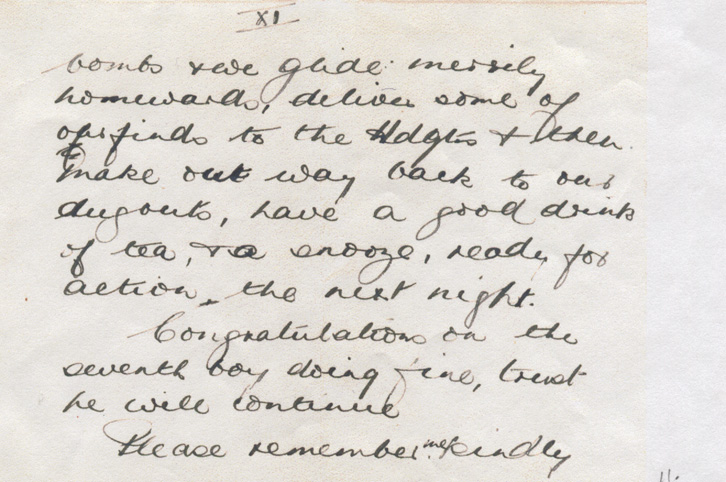 XI
bombs & we glide merrily
homewards, deliver some of
our finds to the Hdqts & then
make out way back to our
dugouts, have a good drink
of tea, & a snooze, ready for
action, the next night.
Congratulations on the
seventh boy doing fine, trust
he will continue
Please remember me kindly